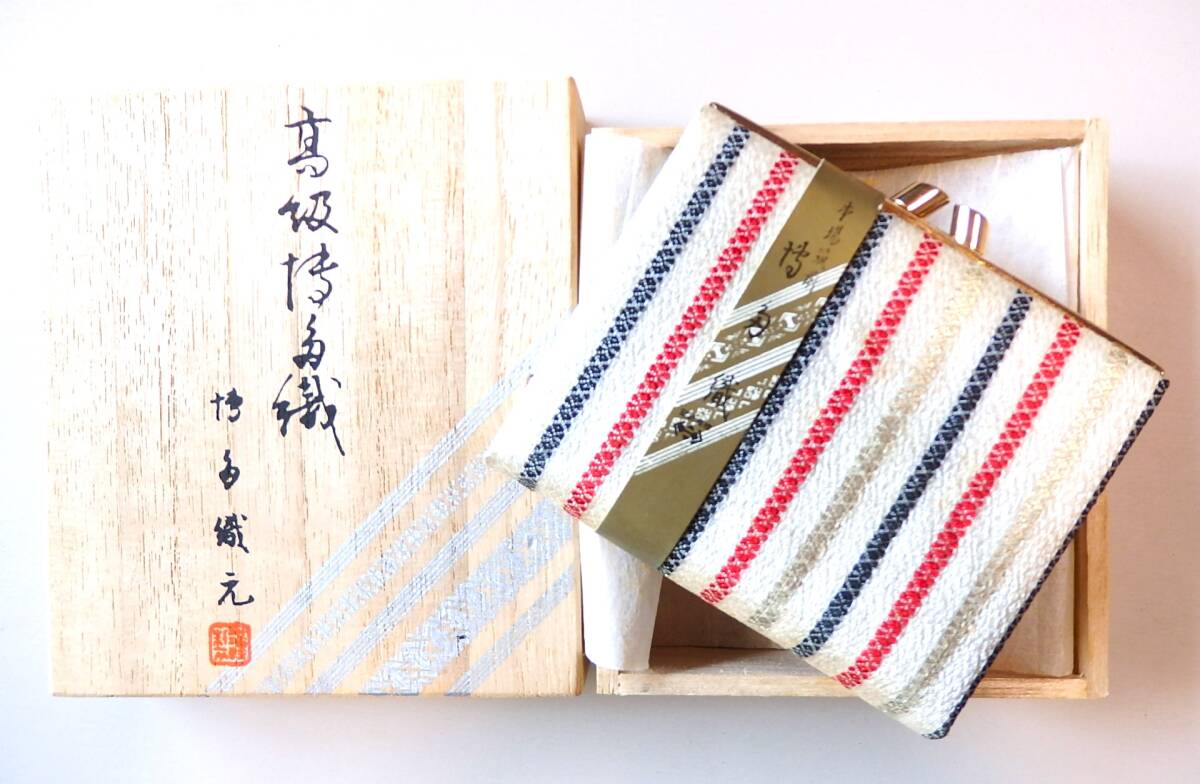 高級博多織
博多織元
博多織